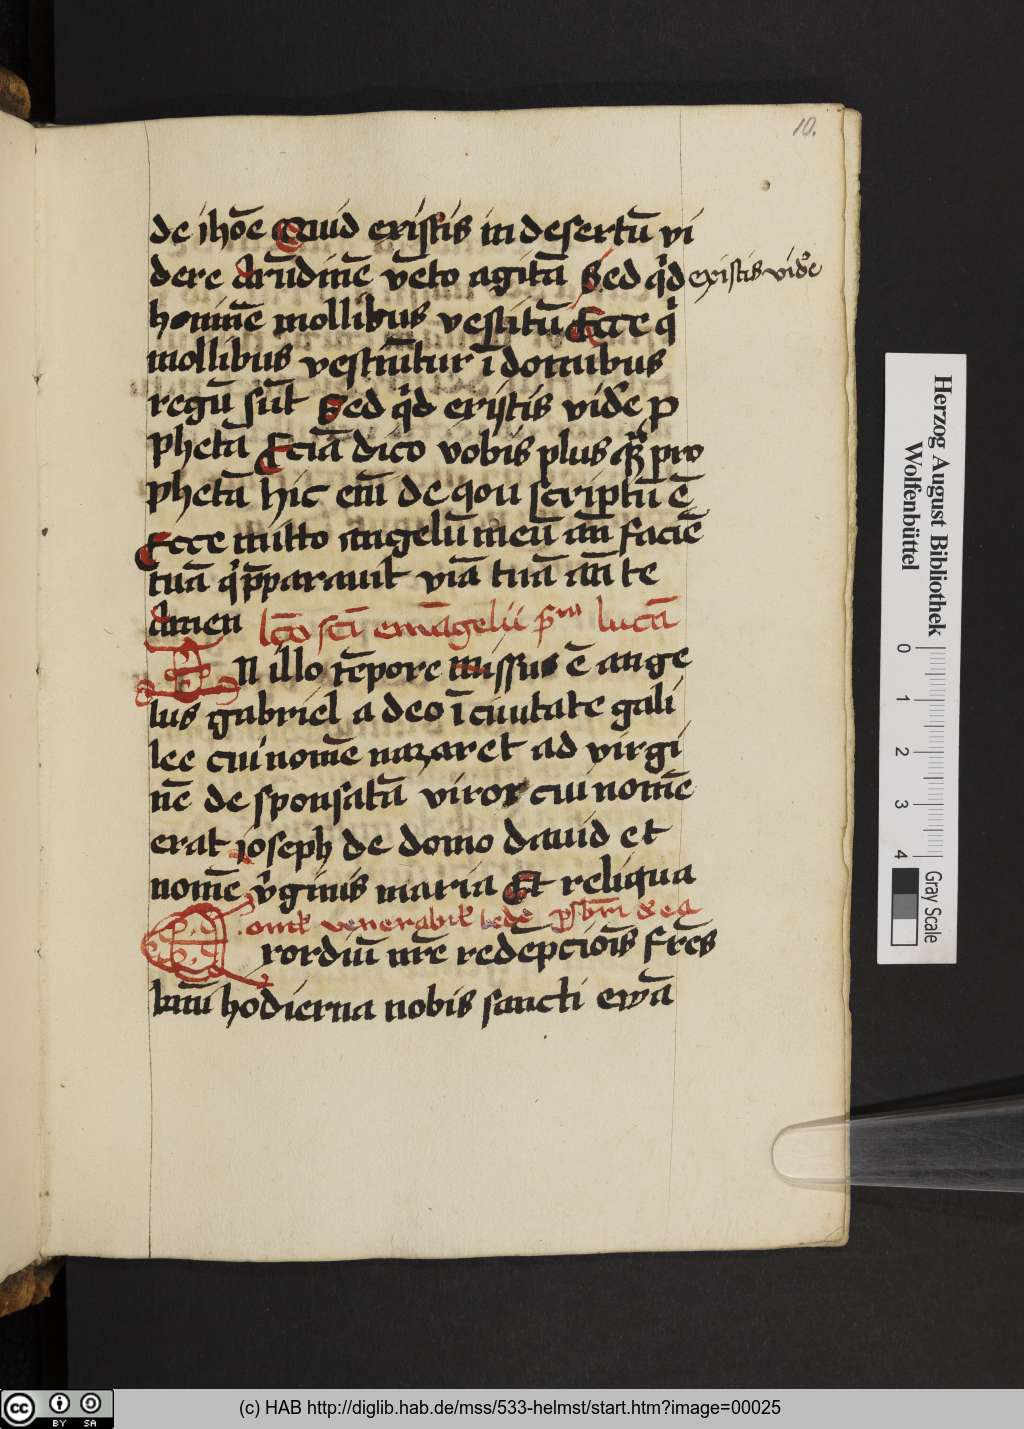 10.
de ihōe Quid existis in desertū vi
dere arūdinē vēto agitā Sed qͥd existis vidēe
hominē mollibus vestitū Ecce qͥ
mollibus vestiūtur ī domibus
regū sūt Sed qͥd exijtis vidēe p
phetā Eciā dico vobis plus qͣꝫ pro
phetā hic em̄ de qou scriptū ē
Ecce mitto angelū meū an̄ faciē
tuā qͥ p̄parauit viā tuā an̄ te
Amen lc̄o sc̄i ewāgelii sᵐ lucā
IN illo tēpore missus ē ange
lus gabriel a deo ī ciuitate gali
lee cui nomē nazaret ad virgi
nē de sponsatā viror cui nomē
erat ioseph de domo dauid et
nomē v̄ginis maria Et reliqua
Omīt venerabilꝭ bede p̄sb̄ri de eā
Exordiū nr̄e redēpciōis fr̄es
kmī hodierna nobis sancti ewā
Herzog August Bibliothek
Wolfenbüttel
0 1 2 3 4
Gray Scale
cc BY SA
(c) HAB http://diglib.hab.de/mss/533-helmst/start.htm?image=00025